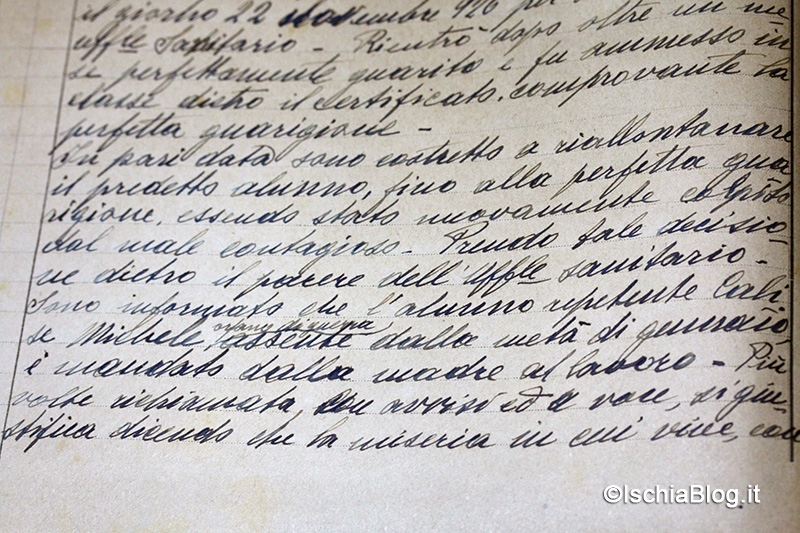 il giorno 22 novembre 926 per
uffle Sanitario - Rientrò dopo oltre un me-
se perfettamente guarito e fu ammesso in
classe dietro il certificato, comprovante la
perfetta guarigione -
In pari data sono costretto a riallontanare
il predetto alunno, fino alla perfetta gua
rigione, essendo stato nuovamente colpito
dal male contagioso - Prendo tale decisio-
ne dietro il parere dell'Uffle sanitario -
Sono informato che l'alunno repetente Cali
se Michele, orfano di guerra, assente dalla metà di gennaio,
è mandato dalla madre al lavoro - Più
volte richiamata, con avvisi ed a voce, si giu-
stifica dicendo che la miseria in cui vive, con
©IschiaBlog.it